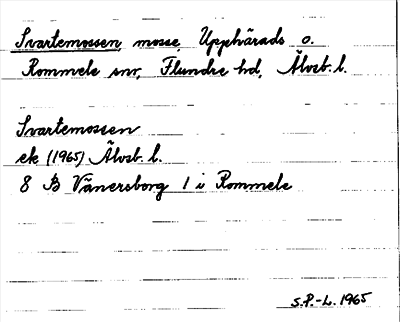 Svartemossen, mosse, Upphärads o.
Rommele snr, Flundre hd, Älvsb. l.
Svartemossen
ek (1965) Älvsb. l.
8 B Vänersborg 1 i Rommele
S.P.-L. 1965